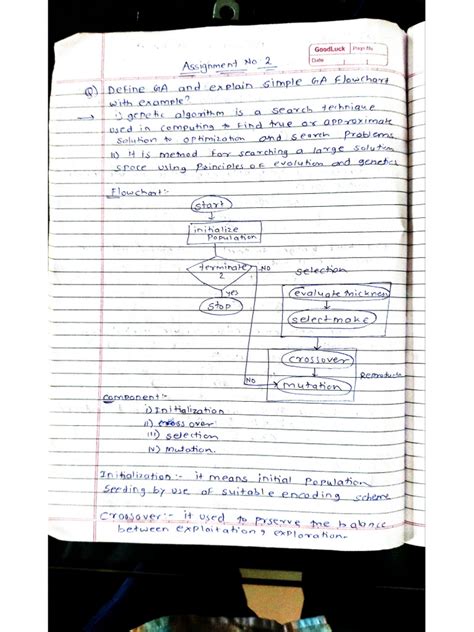 GoodLuck Page No.
Date
Assignment No 2
Q) Define GA and explain simple GA flowchart
with example?
→ i) genetic algorithm is a search technique
used in computing to find true or approximate
solution to optimization and search problems
ii) it is method for searching a large solution
space using principles of evolution and genetics
Flowchart:-
start
initialize
population
terminate NO
?
selection
yes
evaluate thickness
stop
select make
crossover
NO mutation
component:-
i) Initialization
ii) cross over
iii) selection
iv) Mutation.
Initialization:- it means initial population
seeding by use of suitable encoding scheme
Crossover:- it used to prserve the balance
between exploitation, exploration.